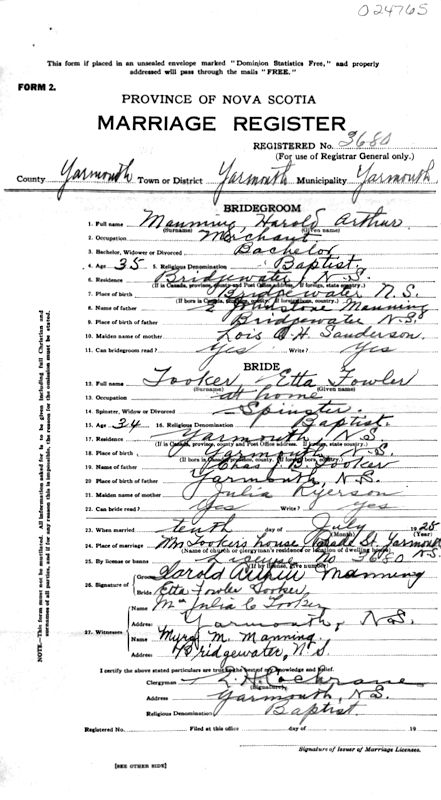 024765
This form if placed in an unsealed envelope marked "Dominion Statistics Free," and properly
addressed will pass through the mails "FREE."
FORM 2.
PROVINCE OF NOVA SCOTIA
MARRIAGE REGISTER
REGISTERED No. 3680
(For use of Registrar General only.)
County Yarmouth Town or District Yarmouth Municipality Yarmouth
BRIDEGROOM
1. Full name Manning, Harold Arthur
(Surname) (Given name)
2. Occupation Merchant
3. Bachelor, Widower or Divorced Bachelor
4. Age 35 5. Religious Denomination Baptist
6. Residence Bridgewater, N.S.
(If in Canada, province, county and Post Office address. If foreign, state country.)
7. Place of birth Bridgewater N.S.
(If born in Canada, province, county. If foreign born, country.)
8. Name of father Johnstone Manning
9. Place of birth of father Bridgewater N.S.
10. Maiden name of mother Lois H. Sanderson
11. Can bridegroom read? Yes Write? Yes
BRIDE
12. Full name Tooker Etta Fowler
(Surname) (Given name)
13. Occupation at home
14. Spinster, Widow or Divorced Spinster
15. Age 34 16. Religious Denomination Baptist
17. Residence Yarmouth, N.S.
(If in Canada, province, county and Post Office address. If foreign, state country.)
18. Place of birth Yarmouth, N.S.
(If born in Canada, province, county. If foreign born, country.)
19. Name of father Chas J. B. Tooker
20. Place of birth of father Yarmouth, N.S.
21. Maiden name of mother Julia Ryerson
22. Can bride read? Yes Write? yes
23. When married tenth day of July 1928
(Month) (Year)
24. Place of marriage Mrs Tooker's house St, Yarmouth N.S.
(Name of church or clergyman's residence or location of dwelling house)
25. By license or banns License No 3680
(If by license, give number)
26. Signature of Groom Harold Arthur Manning
Bride Etta Fowler Tooker
27. Witnesses Name Mrs Julia C Tooker
Address Yarmouth, N.S.
Name Myra M. Manning
Address Bridgewater, N.S.
I certify the above stated particulars are true to the best of my knowledge and belief.
Clergyman Cochrane
(Signature)
Address Yarmouth, N.S.
Religious Denomination Baptist
Registered No. Filed at this office day of 19
Signature of Issuer of Marriage Licenses.
[SEE OTHER SIDE]
NOTE.—This form must not be mutilated. All information asked for is to be given including full Christian and
surnames of all parties, and if for any reason this is impossible, the reason for the omission must be stated.